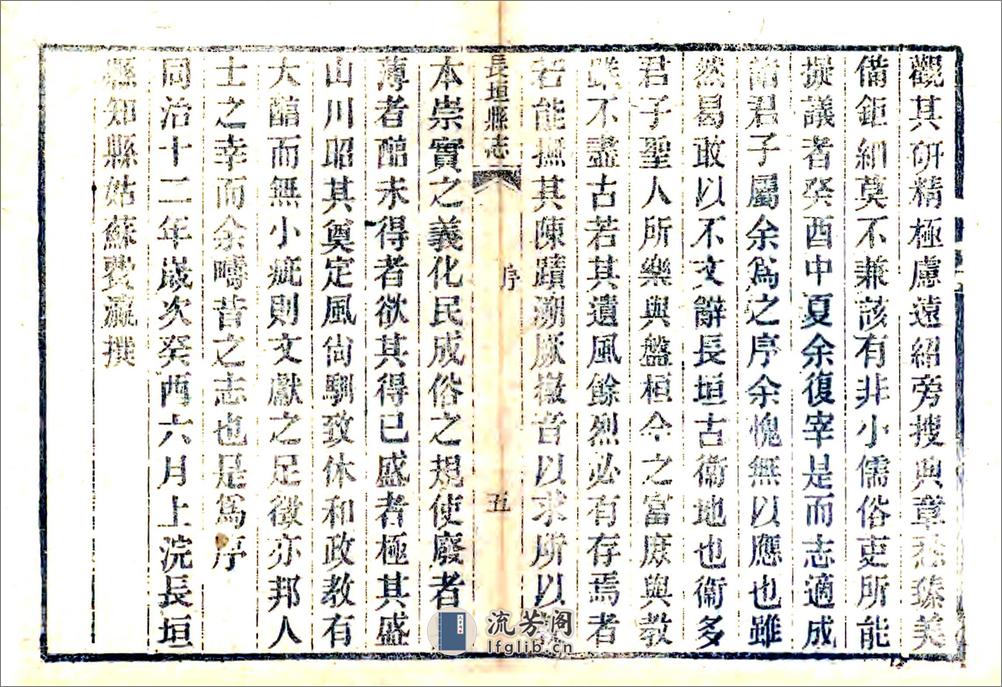 觀其研精極慮遠紹旁搜典章悉臻美
備鉅細莫不兼該有非小儒俗吏所能
擬議者癸酉中夏余復宰是而志適成
諸君子屬余爲之序余愧無以應也雖
然曷敢以不文辭長垣古衛地也衛多
君子聖人所樂與盤桓今之富庶與教
雖不盡古若其遺風餘烈必有存焉者
若能撫其陳蹟溯厥徽音以求所以
長垣縣志
序
五
本崇實之義化民成俗之規使廢者
薄者醕未得者欲其得已盛者極其盛
山川昭其奠定風尙馴致休和政教有
大醕而無小疵則文獻之足徵亦邦人
士之幸而余疇昔之志也是爲序
同治十二年歲次癸酉六月上浣長垣
縣知縣姑蘇費瀛撰
流芳阁
lfglib.cn